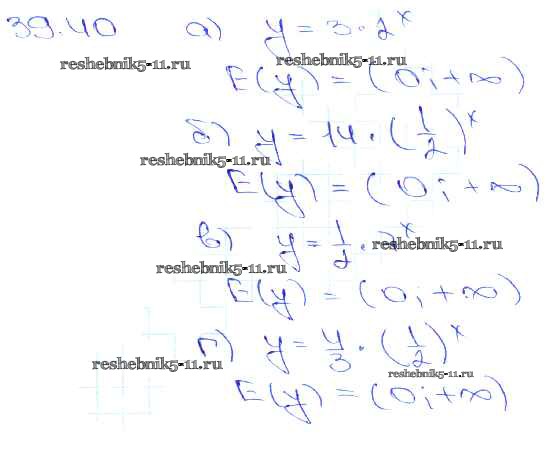 39.40 а) y = 3 · 2^x
reshebnik5-11.ru reshebnik5-11.ru
E(y) = (0; +∞)
б) y = 14 · (1/2)^x
reshebnik5-11.ru
E(y) = (0; +∞)
в) y = 1/2 · 2^x reshebnik5-11.ru
reshebnik5-11.ru
E(y) = (0; +∞)
г) y = 4/3 · (1/2)^x
reshebnik5-11.ru reshebnik5-11.ru
E(y) = (0; +∞)